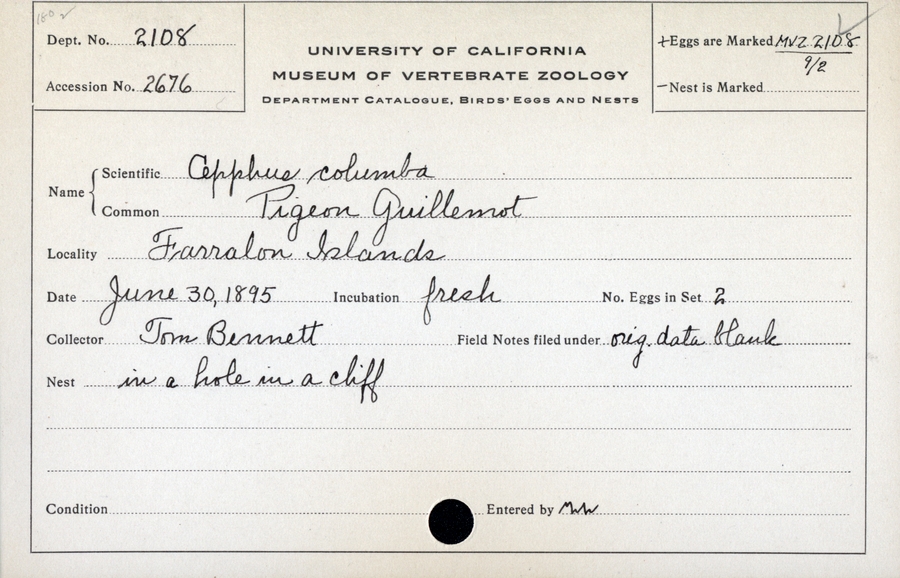 180 ✓
Dept. No. 2108
Accession No. 2676
UNIVERSITY OF CALIFORNIA
MUSEUM OF VERTEBRATE ZOOLOGY
DEPARTMENT CATALOGUE, BIRDS' EGGS AND NESTS
+Eggs are Marked MVZ 2108
9/2
–Nest is Marked
Name { Scientific Cepphus columba
Common Pigeon Guillemot
Locality Farralon Islands
Date June 30, 1895 Incubation fresh No. Eggs in Set 2
Collector Tom Bennett Field Notes filed under orig. data blank
Nest in a hole in a cliff
Condition Entered by